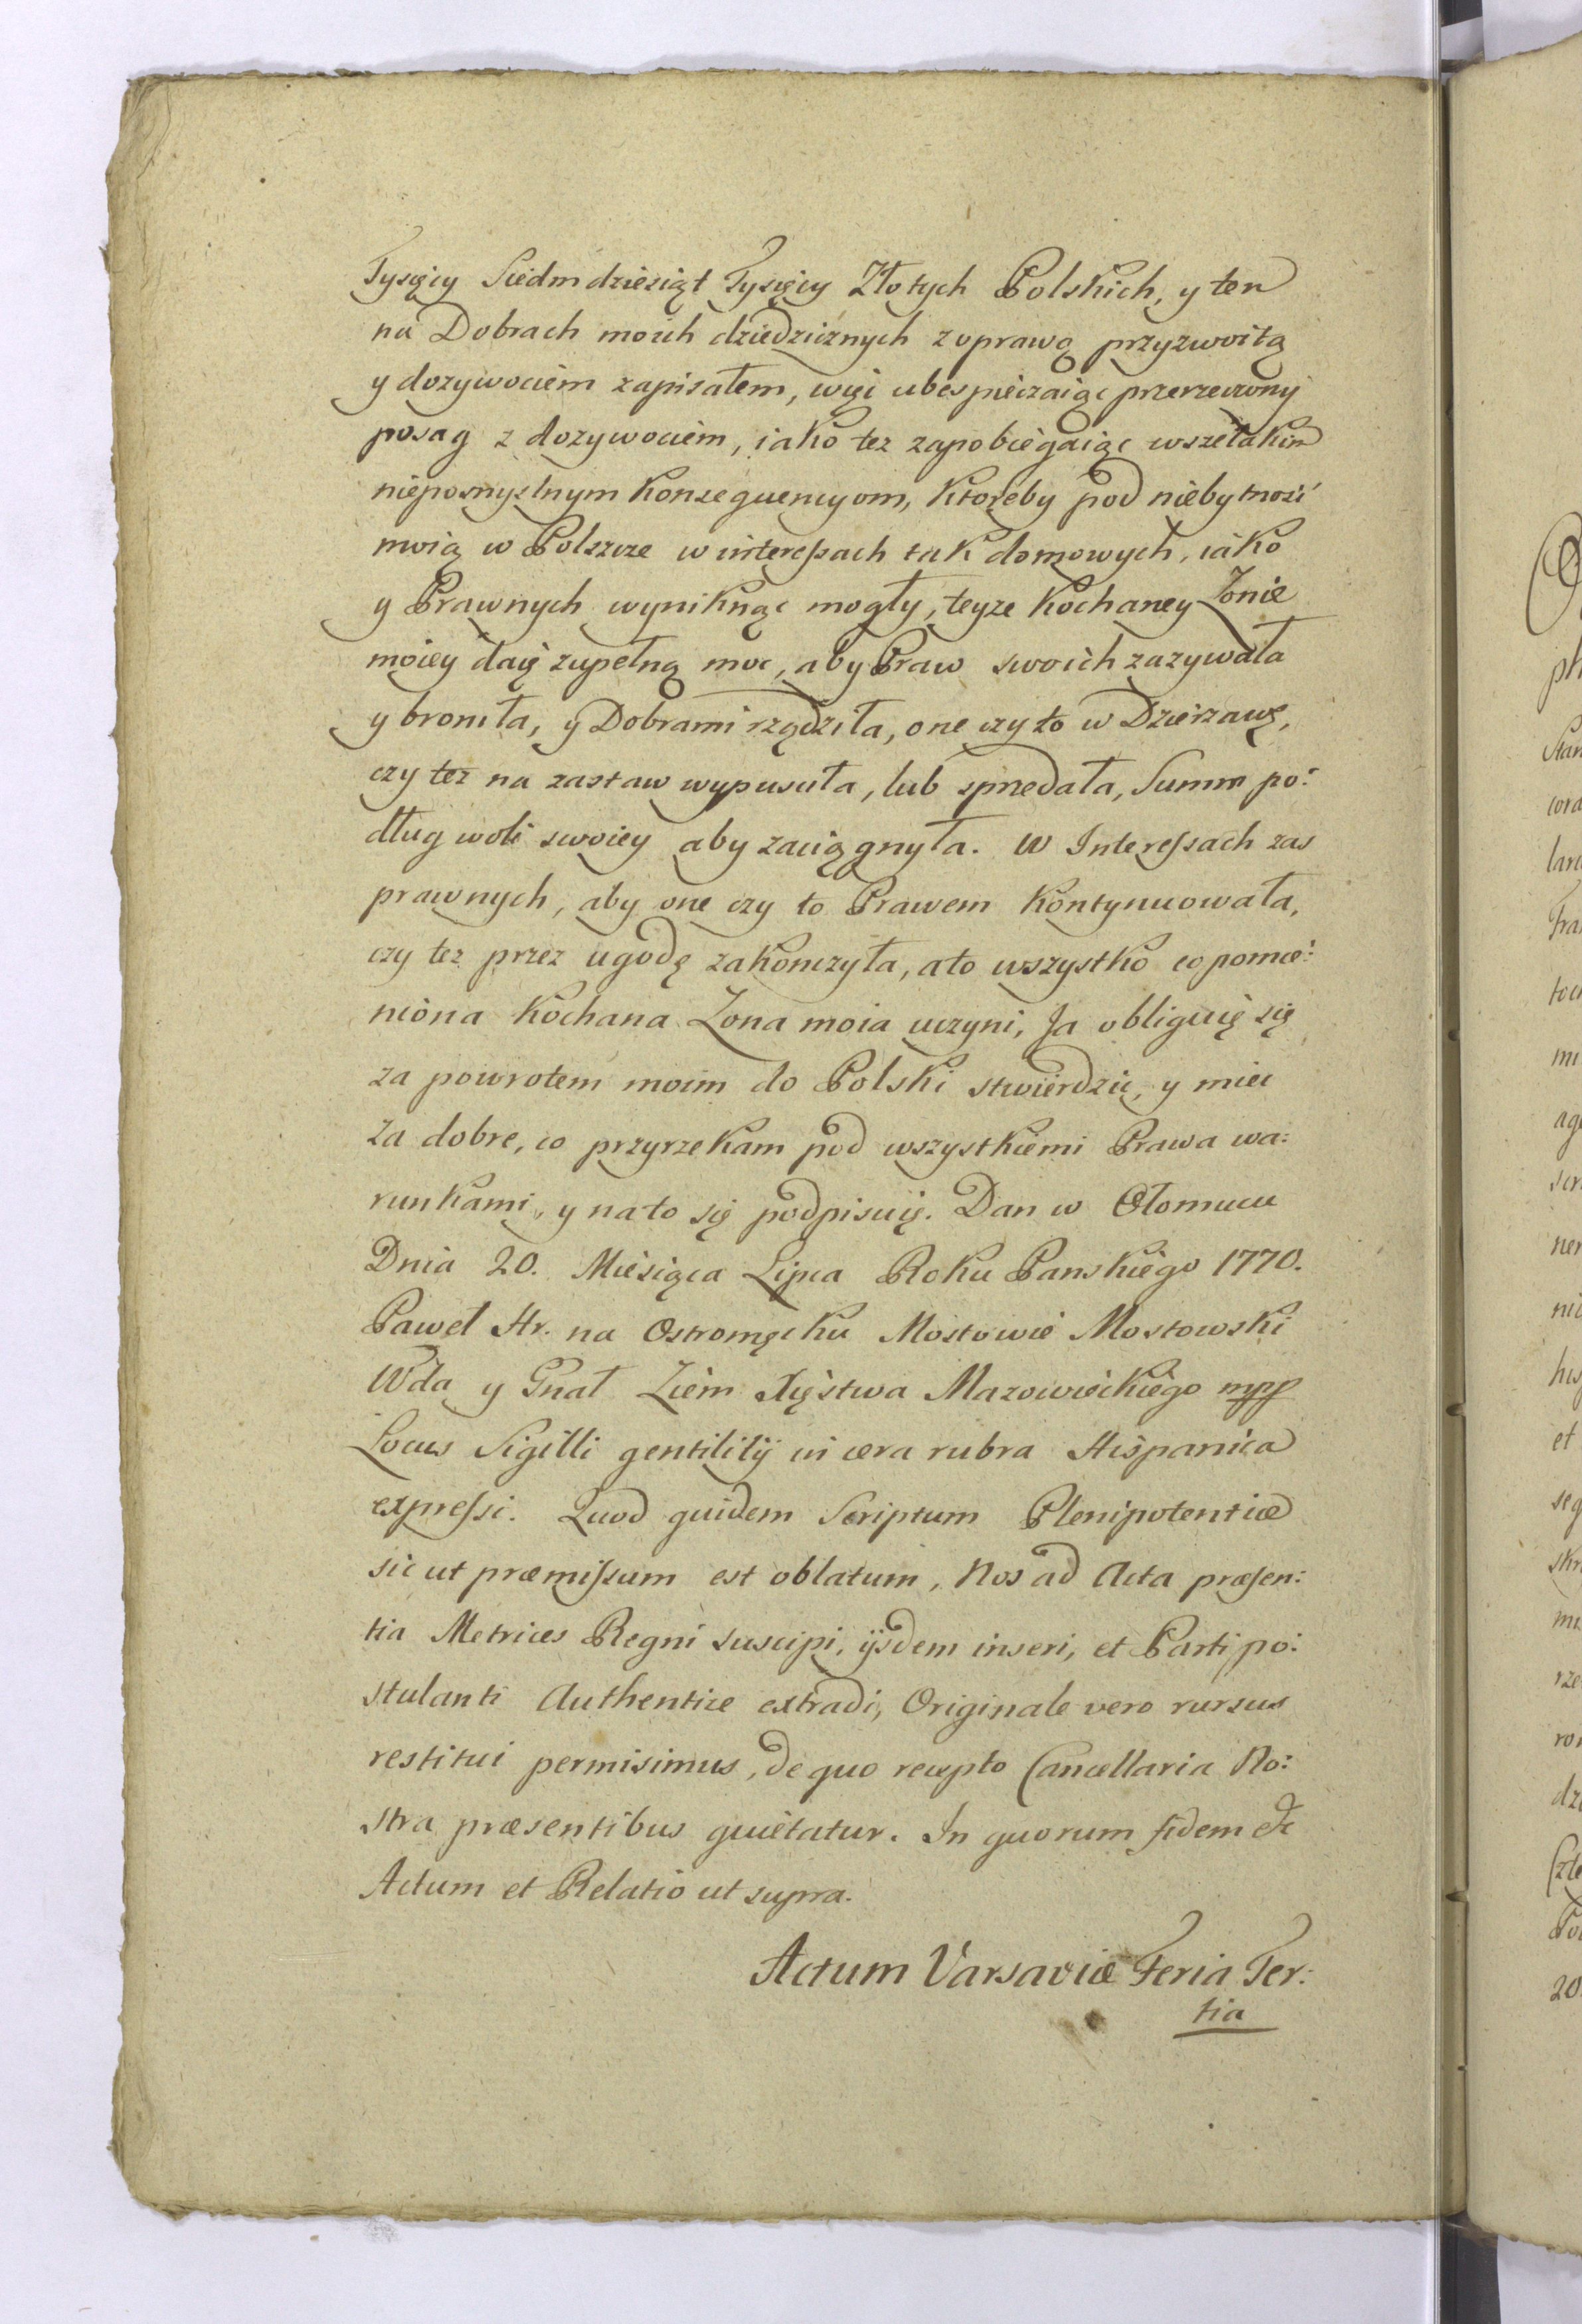 Tysięcy Siedmdziesiąt Tysięcy Złotych Polskich, y ten
na Dobrach moich dziedzicznych z oprawą przyzwoitą
y dozywociem zapisałem, więc ubespieczaiąc przerzeczony
posag z dozywociem, iako tez zapobiegaiąc wszelakim
niepomyslnym konsequencyom, ktoreby pod niebytność
moią w Polszcze w interessach tak domowych, iako
y Prawnych wyniknąc mogły, teyze kochaney Zonie
moiey daię zupełną moc, aby Praw swoich zazywała
y broniła, y Dobrami rządziła, one czy to w Dzierzawę,
czy tez na zastaw wypusciła, lub sprzedała, Summ po:
dług woli swoiey aby zaciągnyła. W Interessach zas
prawnych, aby one czy to Prawem kontynuowała,
czy tez przez ugodę zakonczyła, a to wszystko co pomie:
niona kochana Zona moia uczyni, Ja obliguię się
za powrotem moim do Polski stwierdzic, y miec
za dobre, co przyrzekam pod wszystkiemi Prawa wa:
runkami, y na to się podpisuię. Dan w Ołomucu
Dnia 20. Miesiąca Lipca Roku Panskiego 1770.
Paweł Hr. na Ostromęcku Mostowie Mostowski
Wda y Gnał Ziem Xięstwa Mazowieckiego mpp
Locus Sigilli gentilitij in cera rubra Hispanica
expressi. Quod quidem Scriptum Plenipotentiæ
sic ut præmissum est oblatum, Nos ad Acta præsen:
tia Metrices Regni suscipi, ijsdem inseri, et Parti po:
stulanti Authentice extradi, Originale vero rursus
restitui permisimus, de quo recepto Cancellaria No:
stra præsentibus quietatur. In quorum fidem &c
Actum et Relatio ut supra.
Actum Varsaviæ Feria Ter:
tia